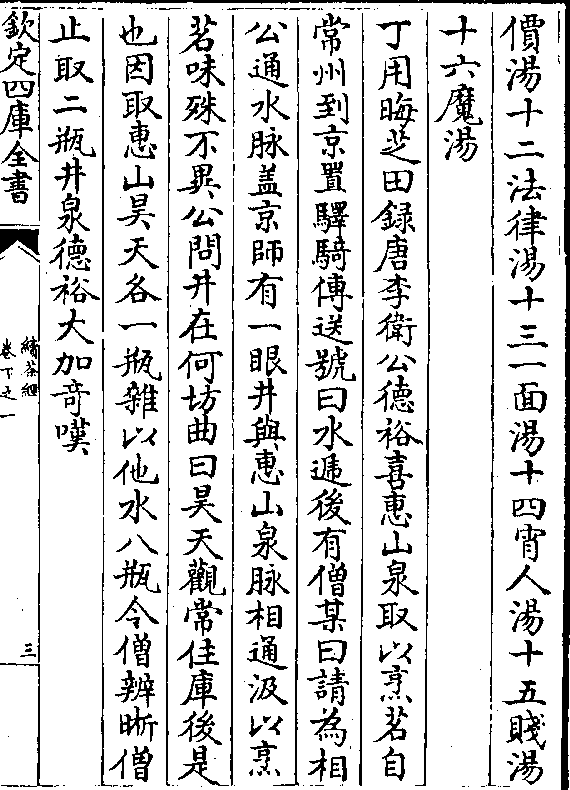 價湯十二法律湯十三一面湯十四宵人湯十五賤湯
十六魔湯
丁用晦芝田録唐李衛公德裕喜惠山泉取以烹茗自
常州到京置驛騎傳送號曰水遞後有僧某曰請為相
公通水脉盖京師有一眼井與惠山泉脉相通汲以烹
茗味殊不異公問井在何坊曲曰昊天觀常住庫後是
也因取惠山昊天各一瓶雜以他水八瓶令僧辨晰僧
止取二瓶井泉德裕大加竒嘆
欽定四庫全書
續茶經
卷下之一
三